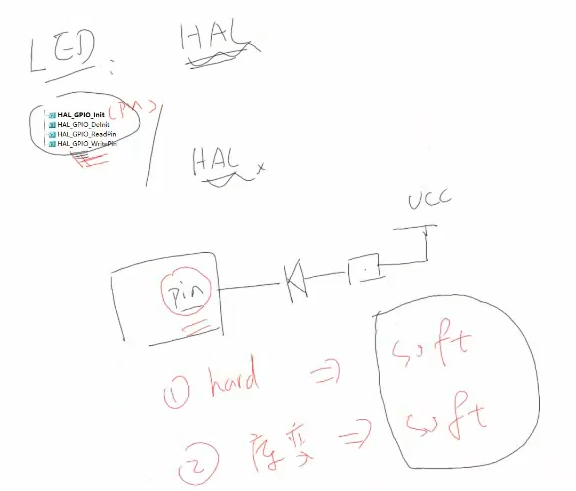 LED:
HAL
HAL_GPIO_Init (Pin)
HAL_GPIO_DeInit
HAL_GPIO_ReadPin
HAL_GPIO_WritePin
HAL x
VCC
pin
① hard ⇒ soft
② 库变 ⇒ soft